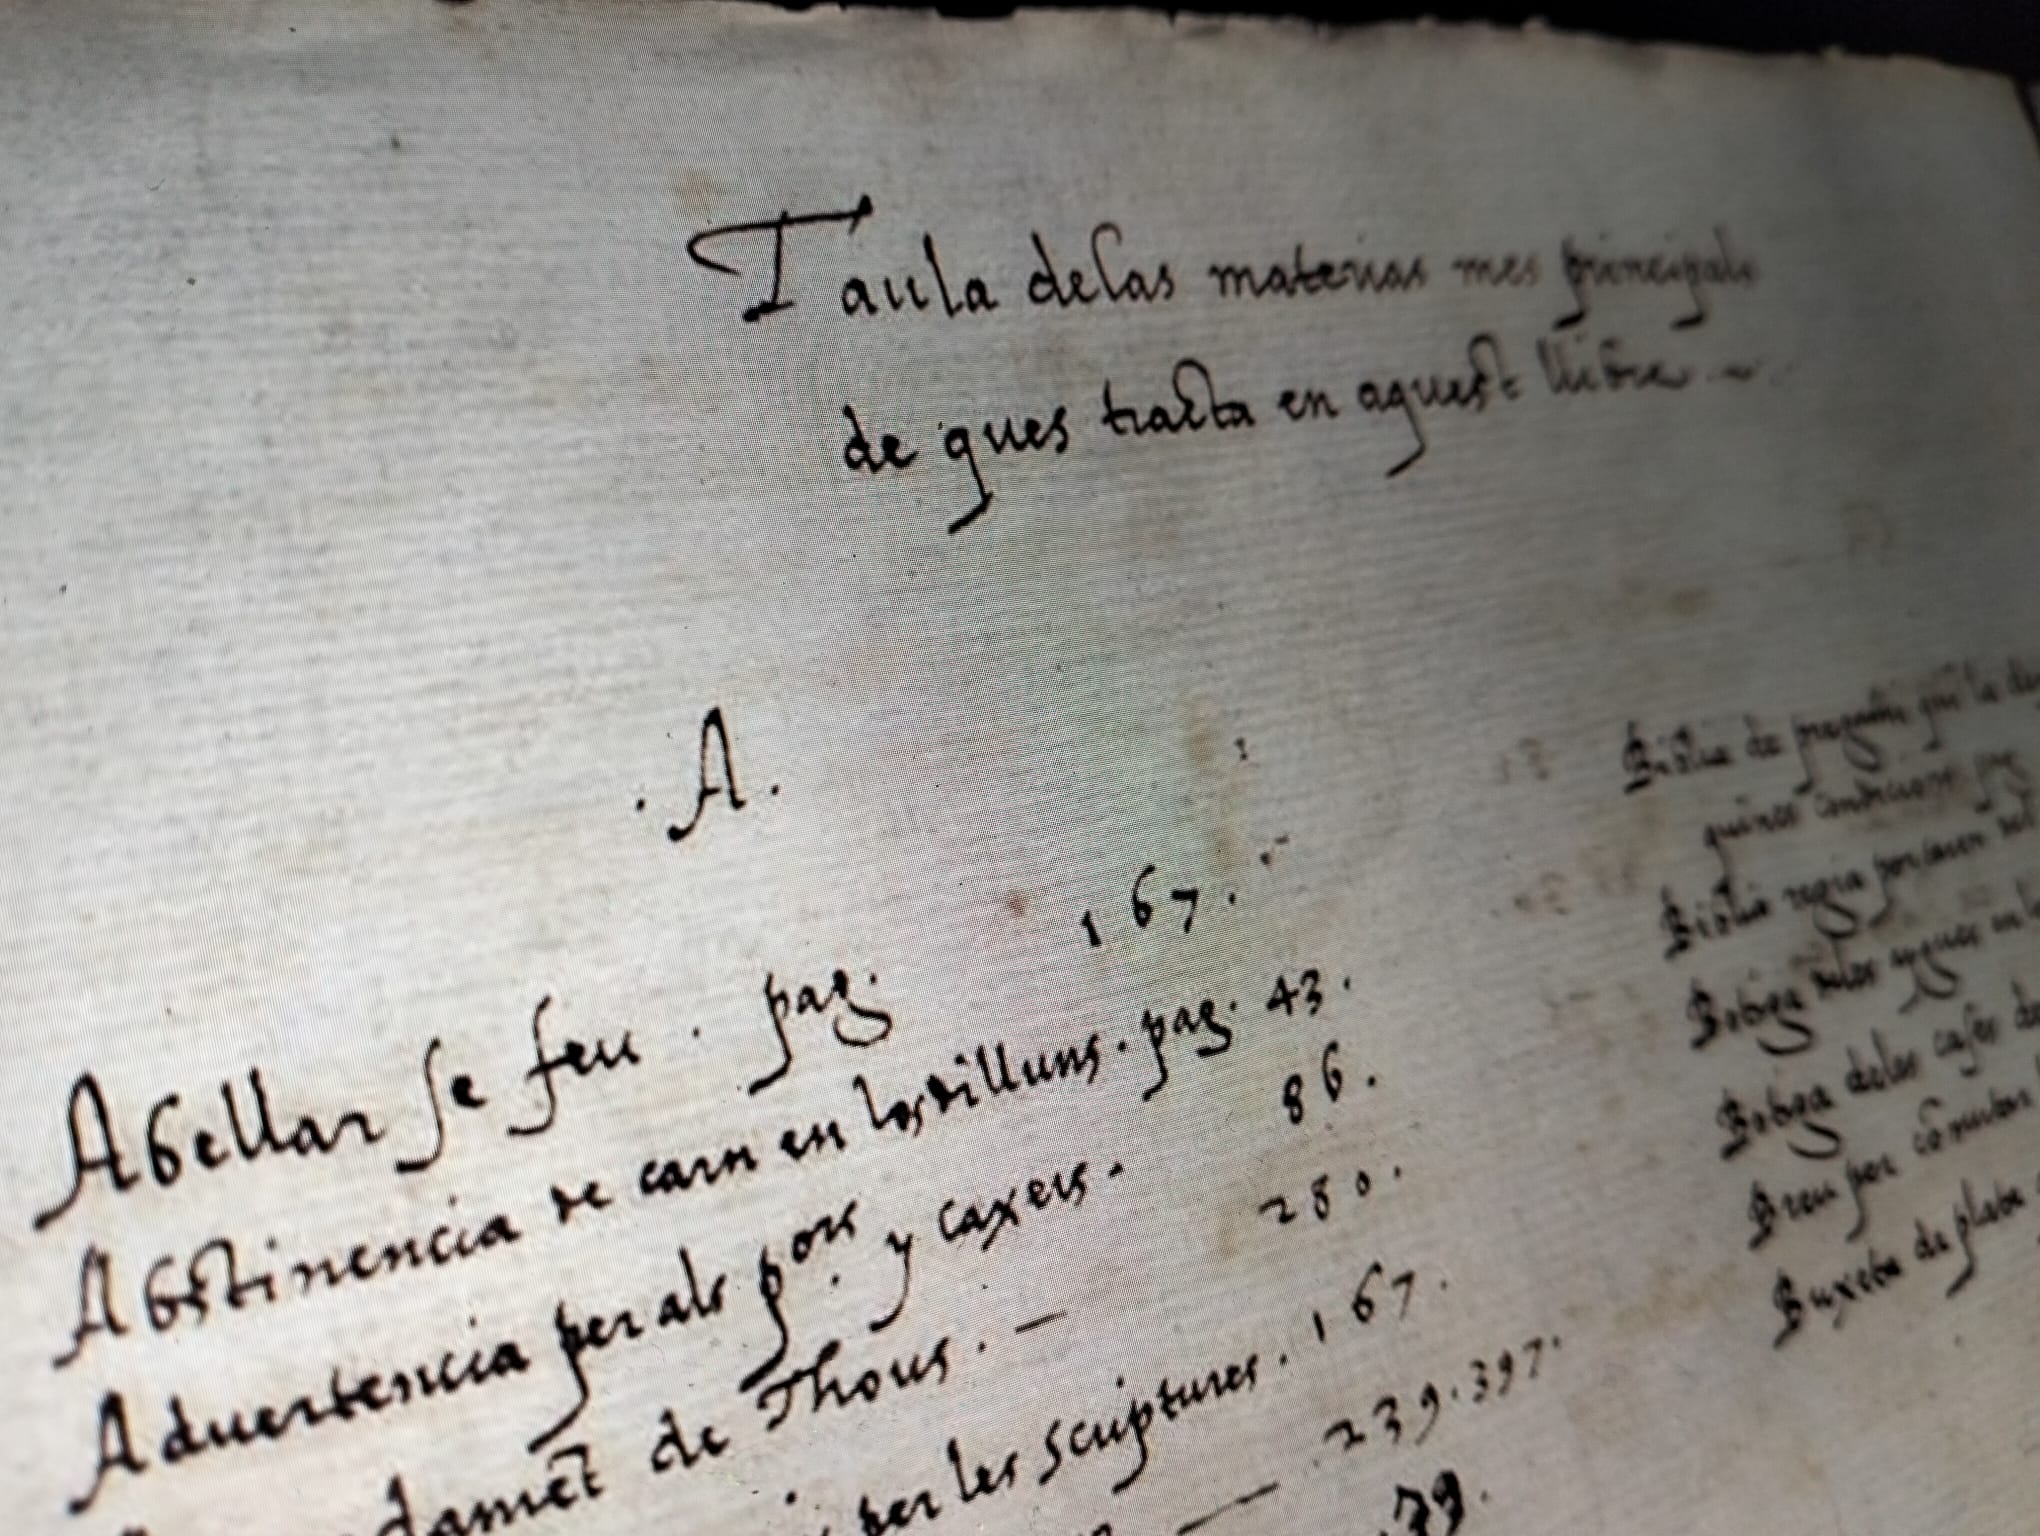 Taula delas materias mes principals
de ques tracta en aquest llibre
.A.
Abellar se feu . pag. 167.
Abstinencia de carn en los dilluns . pag. 43.
Aduertencia per als pors y caxers . 86.
damẽt de Thous . — 280.
per les scriptures . 167.
— 239.397.
79.
Biblia de pergamĩ que la
quinze condicions
Biblia regia
Botiga
Botiga deles cases
Breu per cõmutar
Buxeta de plata